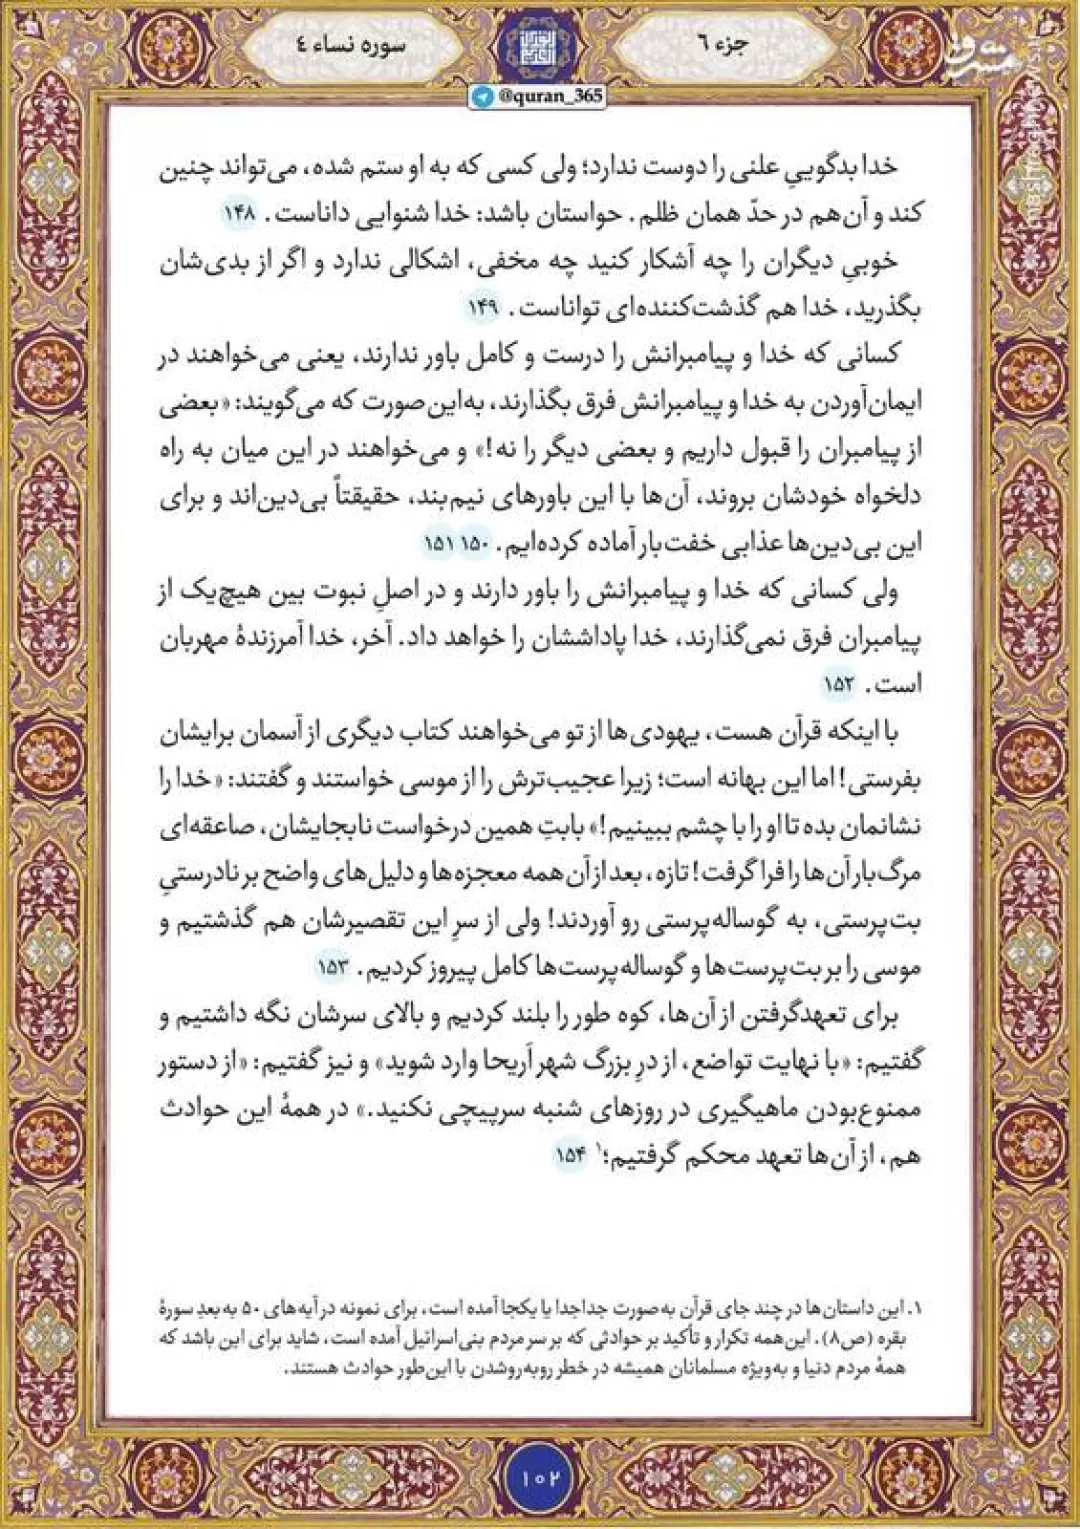 جزء ۶
سوره نساء ٤
مشرق
mashreghnews.ir
@quran_365
خدا بدگوییِ علنی را دوست ندارد؛ ولی کسی که به او ستم شده، می‌تواند چنین
کند و آن‌هم در حدّ همان ظلم. حواستان باشد: خدا شنوایی داناست. ۱۴۸
خوبیِ دیگران را چه آشکار کنید چه مخفی، اشکالی ندارد و اگر از بدی‌شان
بگذرید، خدا هم گذشت‌کننده‌ای تواناست. ۱۴۹
کسانی که خدا و پیامبرانش را درست و کامل باور ندارند، یعنی می‌خواهند در
ایمان‌آوردن به خدا و پیامبرانش فرق بگذارند، به‌این‌صورت که می‌گویند: «بعضی
از پیامبران را قبول داریم و بعضی دیگر را نه!» و می‌خواهند در این میان به راه
دلخواه خودشان بروند، آن‌ها با این باورهای نیم‌بند، حقیقتاً بی‌دین‌اند و برای
این بی‌دین‌ها عذابی خفت‌بار آماده کرده‌ایم. ۱۵۰ ۱۵۱
ولی کسانی که خدا و پیامبرانش را باور دارند و در اصلِ نبوت بین هیچ‌یک از
پیامبران فرق نمی‌گذارند، خدا پاداششان را خواهد داد. آخر، خدا آمرزندهٔ مهربان
است. ۱۵۲
با اینکه قرآن هست، یهودی‌ها از تو می‌خواهند کتاب دیگری از آسمان برایشان
بفرستی! اما این بهانه است؛ زیرا عجیب‌ترش را از موسی خواستند و گفتند: «خدا را
نشانمان بده تا او را با چشم ببینیم!» بابتِ همین درخواست نابجایشان، صاعقه‌ای
مرگ‌بار آن‌ها را فرا گرفت! تازه، بعد از آن همه معجزه‌ها و دلیل‌های واضح بر نادرستیِ
بت‌پرستی، به گوساله‌پرستی رو آوردند! ولی از سرِ این تقصیرشان هم گذشتیم و
موسی را بر بت‌پرست‌ها و گوساله‌پرست‌ها کامل پیروز کردیم. ۱۵۳
برای تعهدگرفتن از آن‌ها، کوه طور را بلند کردیم و بالای سرشان نگه داشتیم و
گفتیم: «با نهایت تواضع، از درِ بزرگ شهر اَریحا وارد شوید» و نیز گفتیم: «از دستور
ممنوع‌بودن ماهیگیری در روزهای شنبه سرپیچی نکنید.» در همهٔ این حوادث
هم، از آن‌ها تعهد محکم گرفتیم؛۱ ۱۵۴
۱. این داستان‌ها در چند جای قرآن به‌صورت جداجدا یا یکجا آمده است، برای نمونه در آیه‌های ۵۰ به بعدِ سورهٔ
بقره (ص۸). این‌همه تکرار و تأکید بر حوادثی که بر سر مردم بنی‌اسرائیل آمده است، شاید برای این باشد که
همهٔ مردم دنیا و به‌ویژه مسلمانان همیشه در خطر روبه‌روشدن با این‌طور حوادث هستند.
۱۰۲